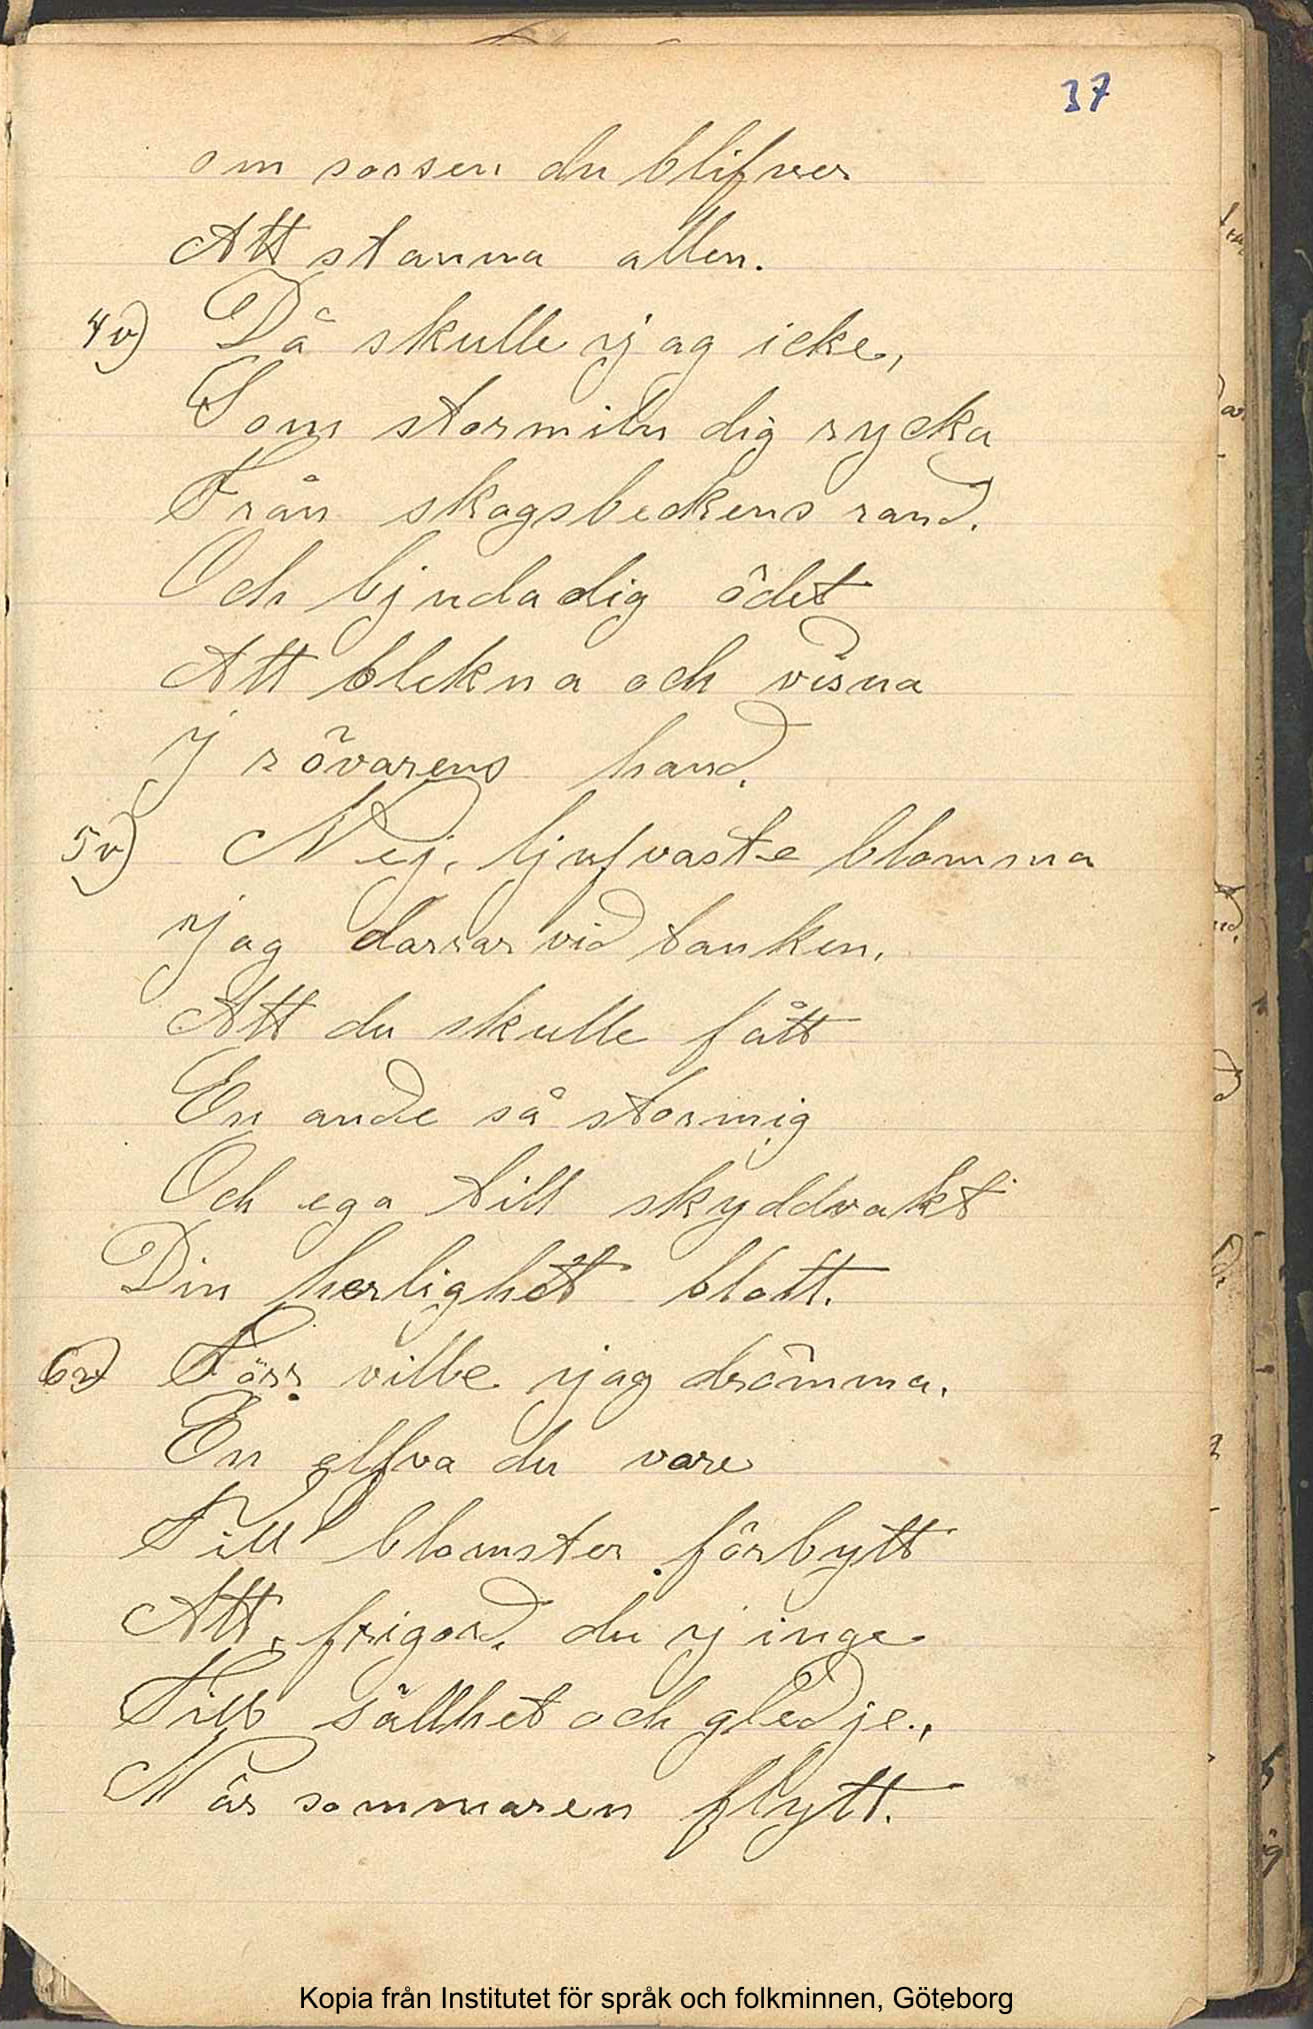 37
om sorsen du blifver
Att stanna allen.
4v) Då skulle jag icke,
Som stormiln dig rycka
Från skogsbeckens rand.
Och bjuda dig ödet
Att blekna och visna
J rövarens hand.
5v) Nej, ljufvaste blomma
jag darrar vid tanken.
Att du skulle fått
En ande så stormig
Och ega till skyddvakt
Din herlighet blott.
6v) Förr ville jag drömma.
En elfva du vare
Till blomster förbytt
Att frigord. du jinge
Till sällhet och gledje.,
När sommaren flytt.
Kopia från Institutet för språk och folkminnen, Göteborg